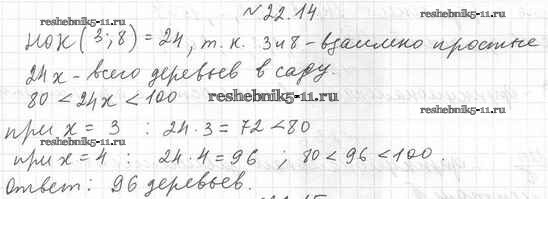 №22.14
reshebnik5-11.ru
reshebnik5-11.ru
НОК(3;8) = 24, т.к. 3 и 8 - взаимно простые
24x - всего деревьев в саду.
80 < 24x < 100
reshebnik5-11.ru
reshebnik5-11.ru
при x = 3 : 24·3 = 72 < 80
при x = 4 : 24·4 = 96 ; 80 < 96 < 100.
reshebnik5-11.ru
reshebnik5-11.ru
Ответ: 96 деревьев.